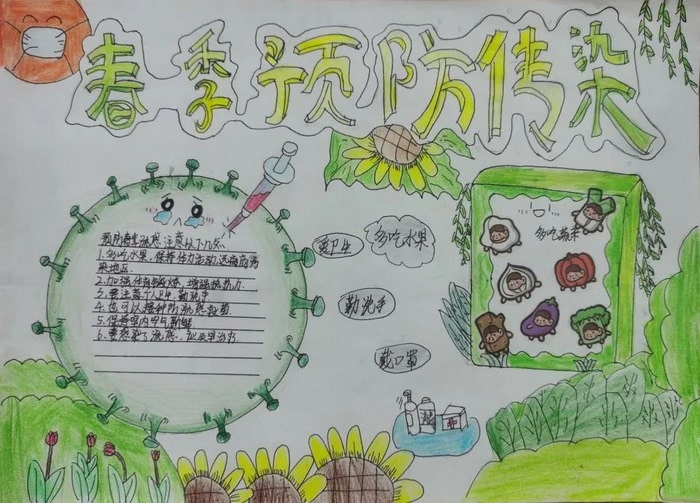 春季预防传染
预防春季流感 注意以下几点
1.多吃水果、保持体力活动远离高传
染地区.
2.加强体育锻炼,增强抵抗力.
3.要注意个人卫生 勤洗手
4.也可以接种防流感疫苗
5.保持室内空气新鲜
6.要感染了流感,应
讲卫生
多吃水果
勤洗手
戴口罩
多吃蔬菜